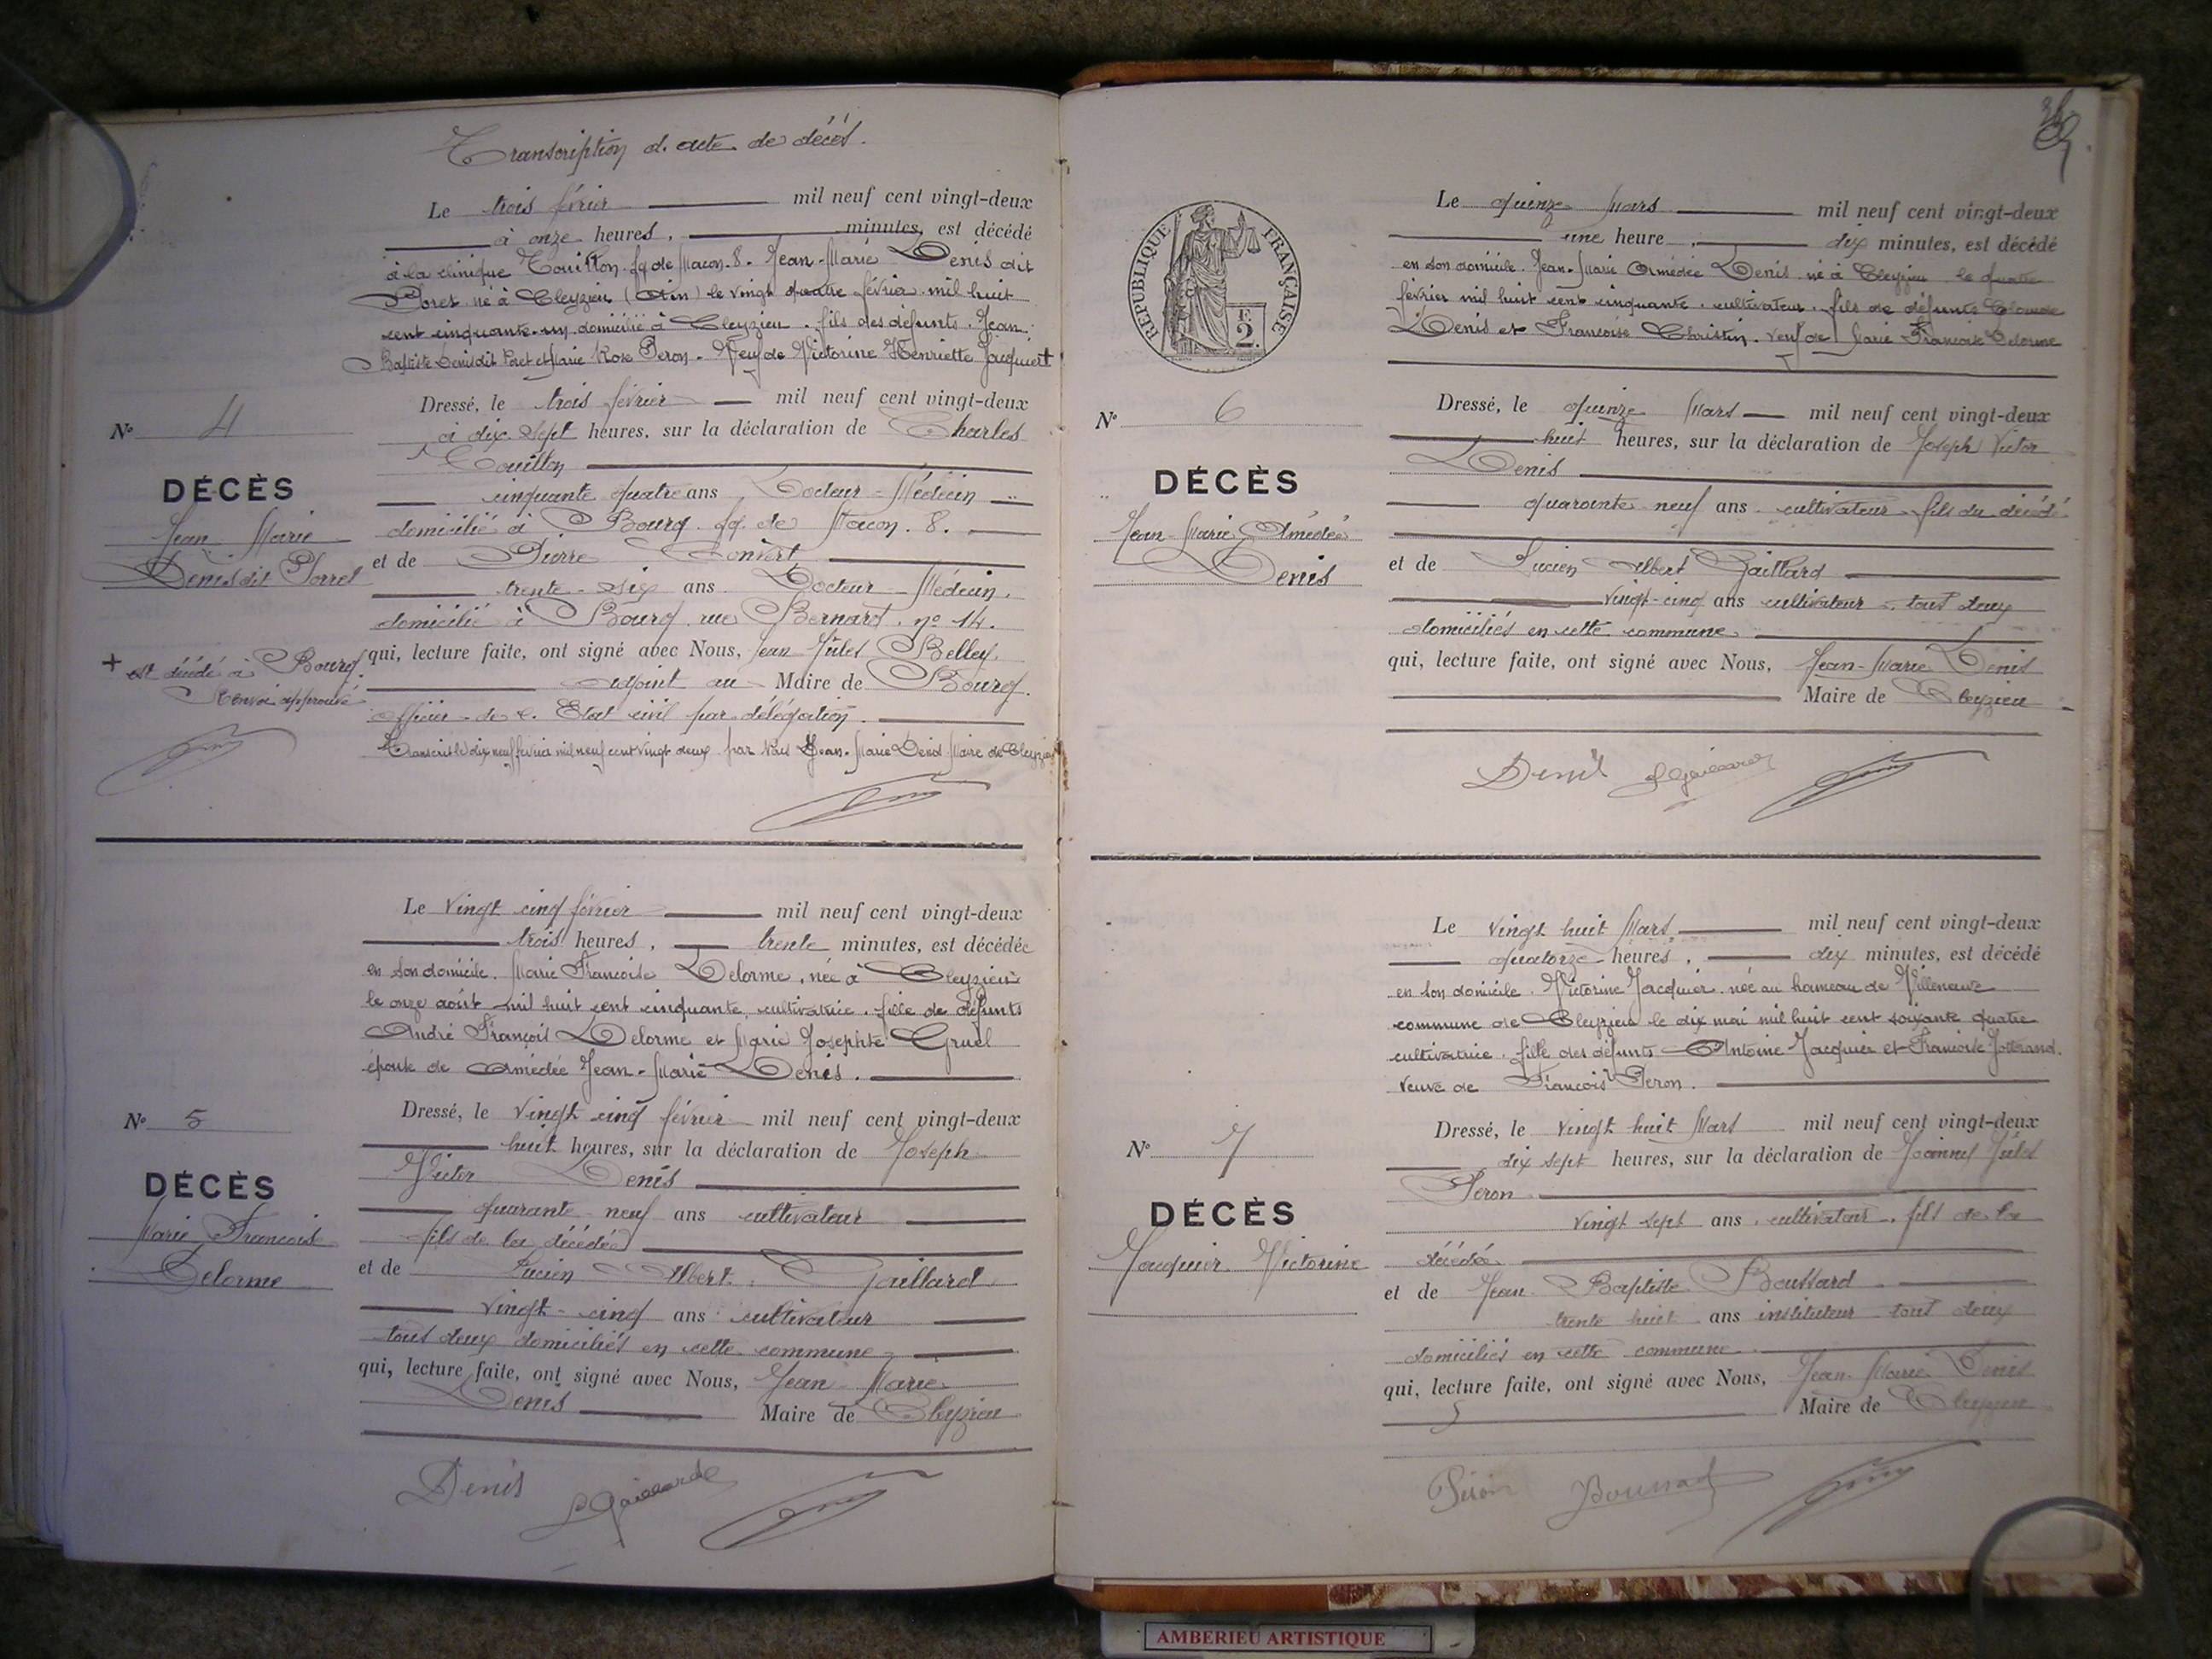 Transcription d'acte de décès.
Le trois février mil neuf cent vingt-deux
à onze heures, minutes, est décédé
à la clinique Touillon fg de Macon. 8. Jean-Marie Denis dit
Poret né à Cleyzieu (Ain) le vingt quatre février mil huit
cent cinquante-un domicilié à Cleyzieu. fils des defunts. Jean
Baptiste Denis dit Poret et Marie Rose Peron. Veuf de Victorine Henriette Jacquiert
Dressé, le trois février mil neuf cent vingt-deux
à dix-sept heures, sur la déclaration de Charles
Touillon
cinquante quatre ans Docteur-Médecin
domicilié à Bourg. fg. de Macon. 8.
et de Pierre Convert
trente-six ans Docteur-Médecin,
domicilié à Bourg rue Bernard. n° 14.
qui, lecture faite, ont signé avec Nous, Jean Jules Belley
adjoint au Maire de Bourg.
officier de l'Etat civil par délégation.
Transcrit le dix neuf février mil neuf cent vingt deux par Nous Jean-Marie Denis Maire de Cleyzieu
N° 4
DÉCÈS
Jean Marie
Denis dit Porret
+ est décédé à Bourg.
Renvoi approuvé
Le vingt cinq février mil neuf cent vingt-deux
trois heures, trente minutes, est décédée
en son domicile. Marie Françoise Delorme, née à Cleyzieu
le onze août mil huit cent cinquante, cultivatrice. fille de défunts
André François Delorme et Marie Josephte Gruel
épouse de Amédée Jean-Marie Denis.
Dressé, le vingt cinq février mil neuf cent vingt-deux
huit heures, sur la déclaration de Joseph
Victor Denis
quarante-neuf ans cultivateur
fils de la décédée
et de Lucien Albert Gaillard
vingt-cinq ans cultivateur
tous deux domiciliés en cette commune
qui, lecture faite, ont signé avec Nous, Jean Marie
Denis Maire de Cleyzieu
N° 5
DÉCÈS
Marie Francoise
Delorme
Denis LGaillard
Le quinze Mars mil neuf cent vingt-deux
une heure, dix minutes, est décédé
en son domicile. Jean-Marie Amédée Denis né à Cleyzieu le quatre
février mil huit cent cinquante. cultivateur. fils de défunts Claude
Denis et Francoise Christin. veuf de Marie Francoise Delorme
Dressé, le quinze Mars mil neuf cent vingt-deux
huit heures, sur la déclaration de Joseph Victor
Denis
quarante neuf ans cultivateur fils du décédé
et de Lucien Albert Gaillard
vingt-cinq ans cultivateur tous deux
domiciliés en cette commune
qui, lecture faite, ont signé avec Nous, Jean-Marie Denis
Maire de Cleyzieu
RÉPUBLIQUE FRANÇAISE
2F.
N° 6
DÉCÈS
Jean-Marie Amédée
Denis
Denis LGaillard
Le vingt huit Mars mil neuf cent vingt-deux
quatorze heures, dix minutes, est décédé
en son domicile. Victorine Jacquier née au hameau de Villeneuve
commune de Cleyzieu le dix mai mil huit cent soixante quatre
cultivatrice. fille des défunts Antoine Jacquier et Francoise Jotterand.
veuve de Francois Peron.
Dressé, le vingt huit Mars mil neuf cent vingt-deux
dix sept heures, sur la déclaration de Joannel Jules
Peron
vingt sept ans, cultivateur, fils de la
décédée
et de Jean Baptiste Boussard
trente huit ans instituteur tous deux
domiciliés en cette commune
qui, lecture faite, ont signé avec Nous, Jean-Marie Denis
Maire de Cleyzieu
N° 7
DÉCÈS
Jacquier Victorine
Péron Boussard
AMBERIEU ARTISTIQUE